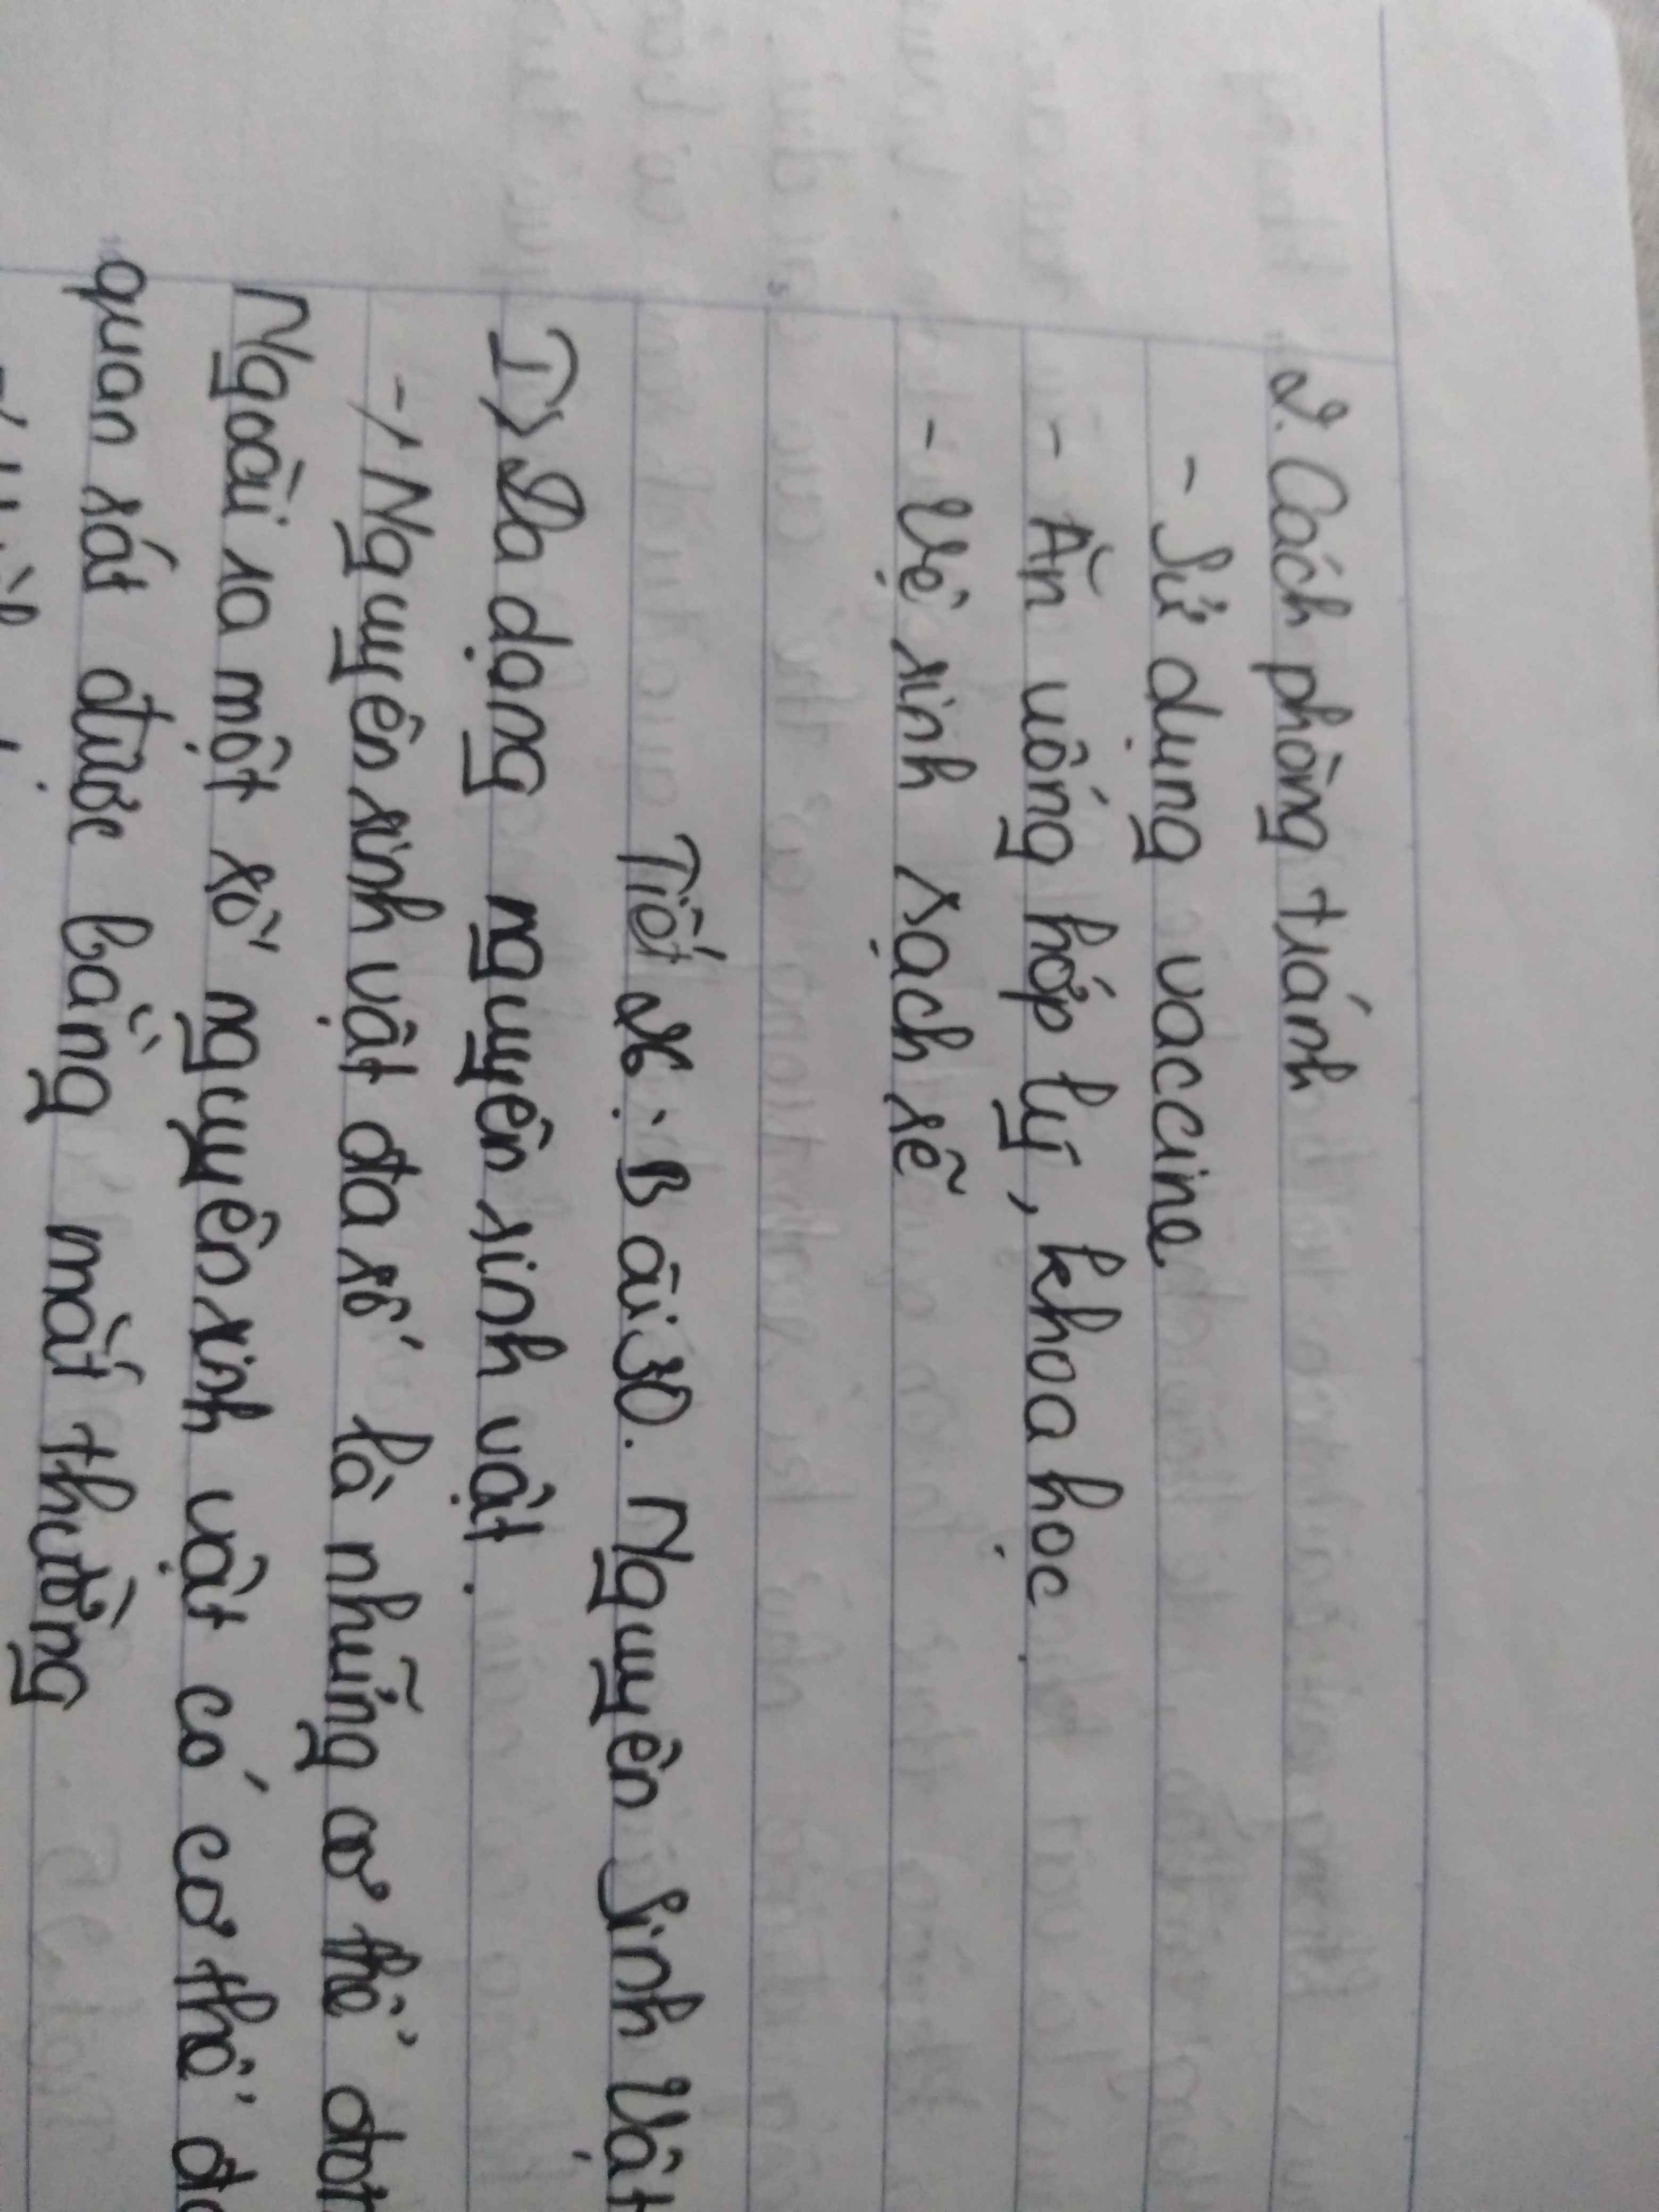 2. Cách phòng tránh
- Sử dụng vaccine
- Ăn uống hớp lý, khoa học
- Vệ sinh sạch sẽ
Tiết 26: Bài 30. Nguyên Sinh Vật
I) Đa dạng nguyên sinh vật.
-/ Nguyên sinh vật đa số là những cơ thể
Ngoài ra một số nguyên sinh vật có cơ thể
quan sát được bằng mắt thường